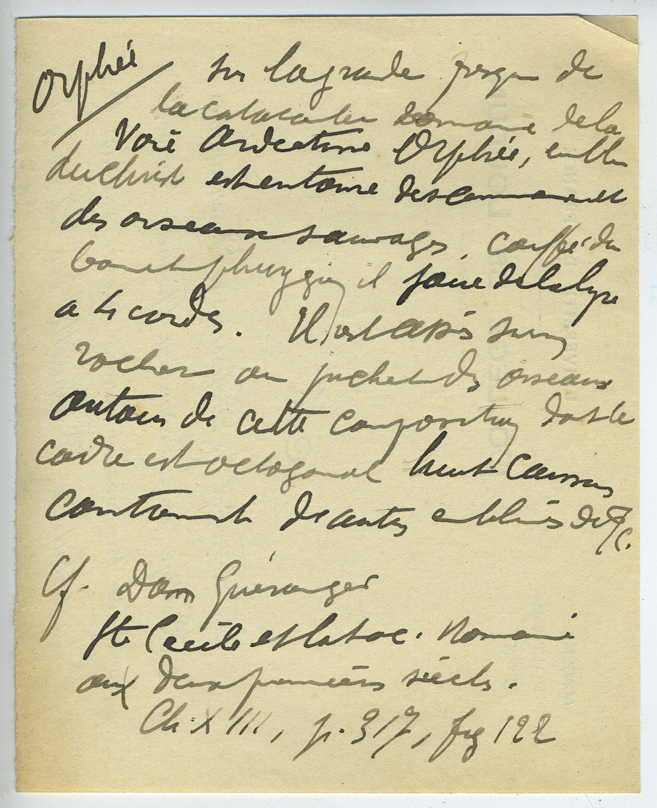 Orphée
Sur la grande fresque de
la catacombe romaine de la
Voie Ardeatine Orphée, emblème
du Christ est entouré des animaux et
des oiseaux sauvages, coiffé du
bonnet phrygien il joue de la lyre
a 4 cordes. Il est assis sur un
rocher ou juchent des oiseaux
autour de cette composition dont le
cadre est octogonal huit caissons
contiennent d'autres emblèmes de J.C.
Cf. Dom Guéranger
Ste Cecile et la soc. Romaine
aux deux premiers siècles.
Ch. XIII, p. 317, fig 122